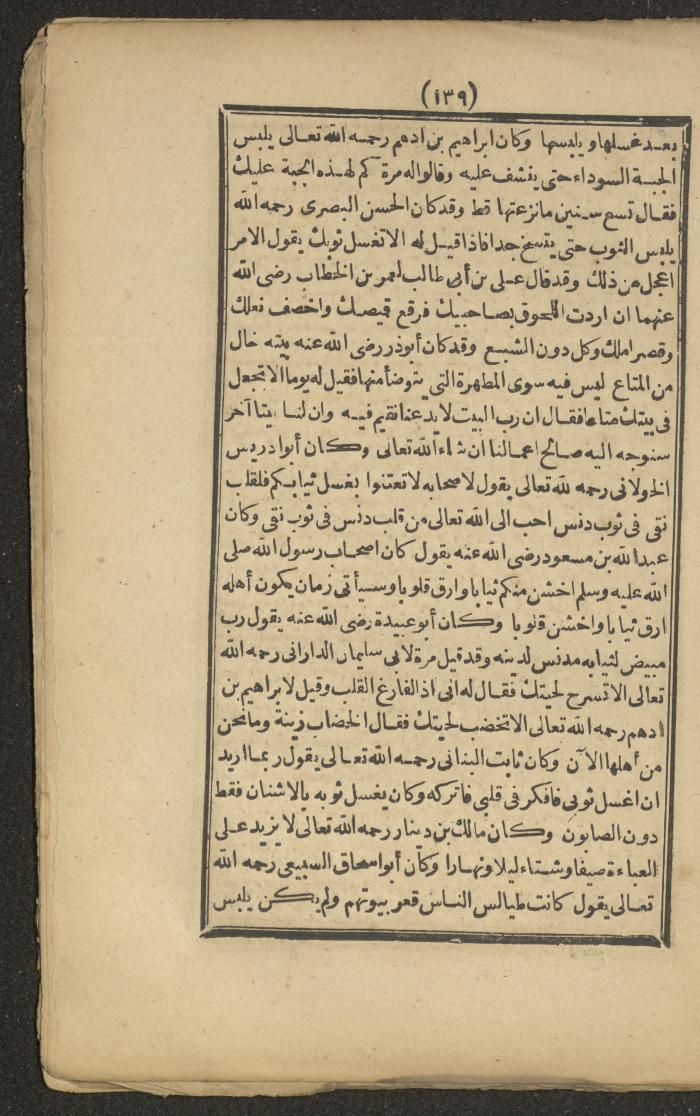 (١٣٩)
بعد غسلها ويلبسها وكان ابراهيم بن ادهم رحمه الله تعالى يلبس
الجبة السوداء حتى ينشف عليه وقالوا له مرة كم لهذه الجبة عليك
فقال تسع سنين مانزعتها قط وقد كان الحسن البصرى رحمه الله
يلبس الثوب حتى يتسخ جدا فاذا قيل له الا تغسل ثوبك يقول الامر
اعجل من ذلك وقد قال على بن أبى طالب لعمر بن الخطاب رضى الله
عنهما ان اردت اللحوق بصاحبيك فرقع قميصك واخصف نعلك
وقصر املك وكل دون الشبع وقد كان أبوذر رضى الله عنه بيته خال
من المتاع ليس فيه سوى المطهرة التى يتوضأ منها فقيل له يوما الا تجعل
فى بيتك متاعا فقال ان رب البيت لا يدعنا نقيم فيه وان لنا بيتا آخر
سنوجه اليه صالح اعمالنا ان شاء الله تعالى وكان أبوادريس
الخولانى رحمه لله تعالى يقول لاصحابه لا تعتنوا بغسل ثيابكم فلقلب
نقى فى ثوب دنس احب الى الله تعالى من قلب دنس فى ثوب نقى وكان
عبد الله بن مسعود رضى الله عنه يقول كان اصحاب رسول الله صلى
الله عليه وسلم اخشن منكم ثيابا وارق قلوبا وسيأتى زمان يكون أهله
ارق ثيابا واخشن قلوبا وكان أبو عبيدة رضى الله عنه يقول رب
مبيض لثيابه مدنس لدينه وقد قيل مرة لابى سليمان الدارانى رحمه الله
تعالى الا تسرح لحيتك فقال له انى اذ الفارغ القلب وقيل لابراهيم بن
ادهم رحمه الله تعالى الا تخضب لحيتك فقال الخضاب زينة ومانحن
من أهلها الآن وكان ثابت البنانى رحمه الله تعالى يقول ربما اريد
ان اغسل ثوبى فافكر فى قلبى فاتركه وكان يغسل ثوبه بالاشنان فقط
دون الصابون وكان مالك بن دينار رحمه الله تعالى لا يزيد على
العباءة صيفا وشتاء ليلا ونهارا وكان أبو اسحاق السبيعى رحمه الله
تعالى يقول كانت طيالس الناس قعر بيوتهم ولم يكن يلبس